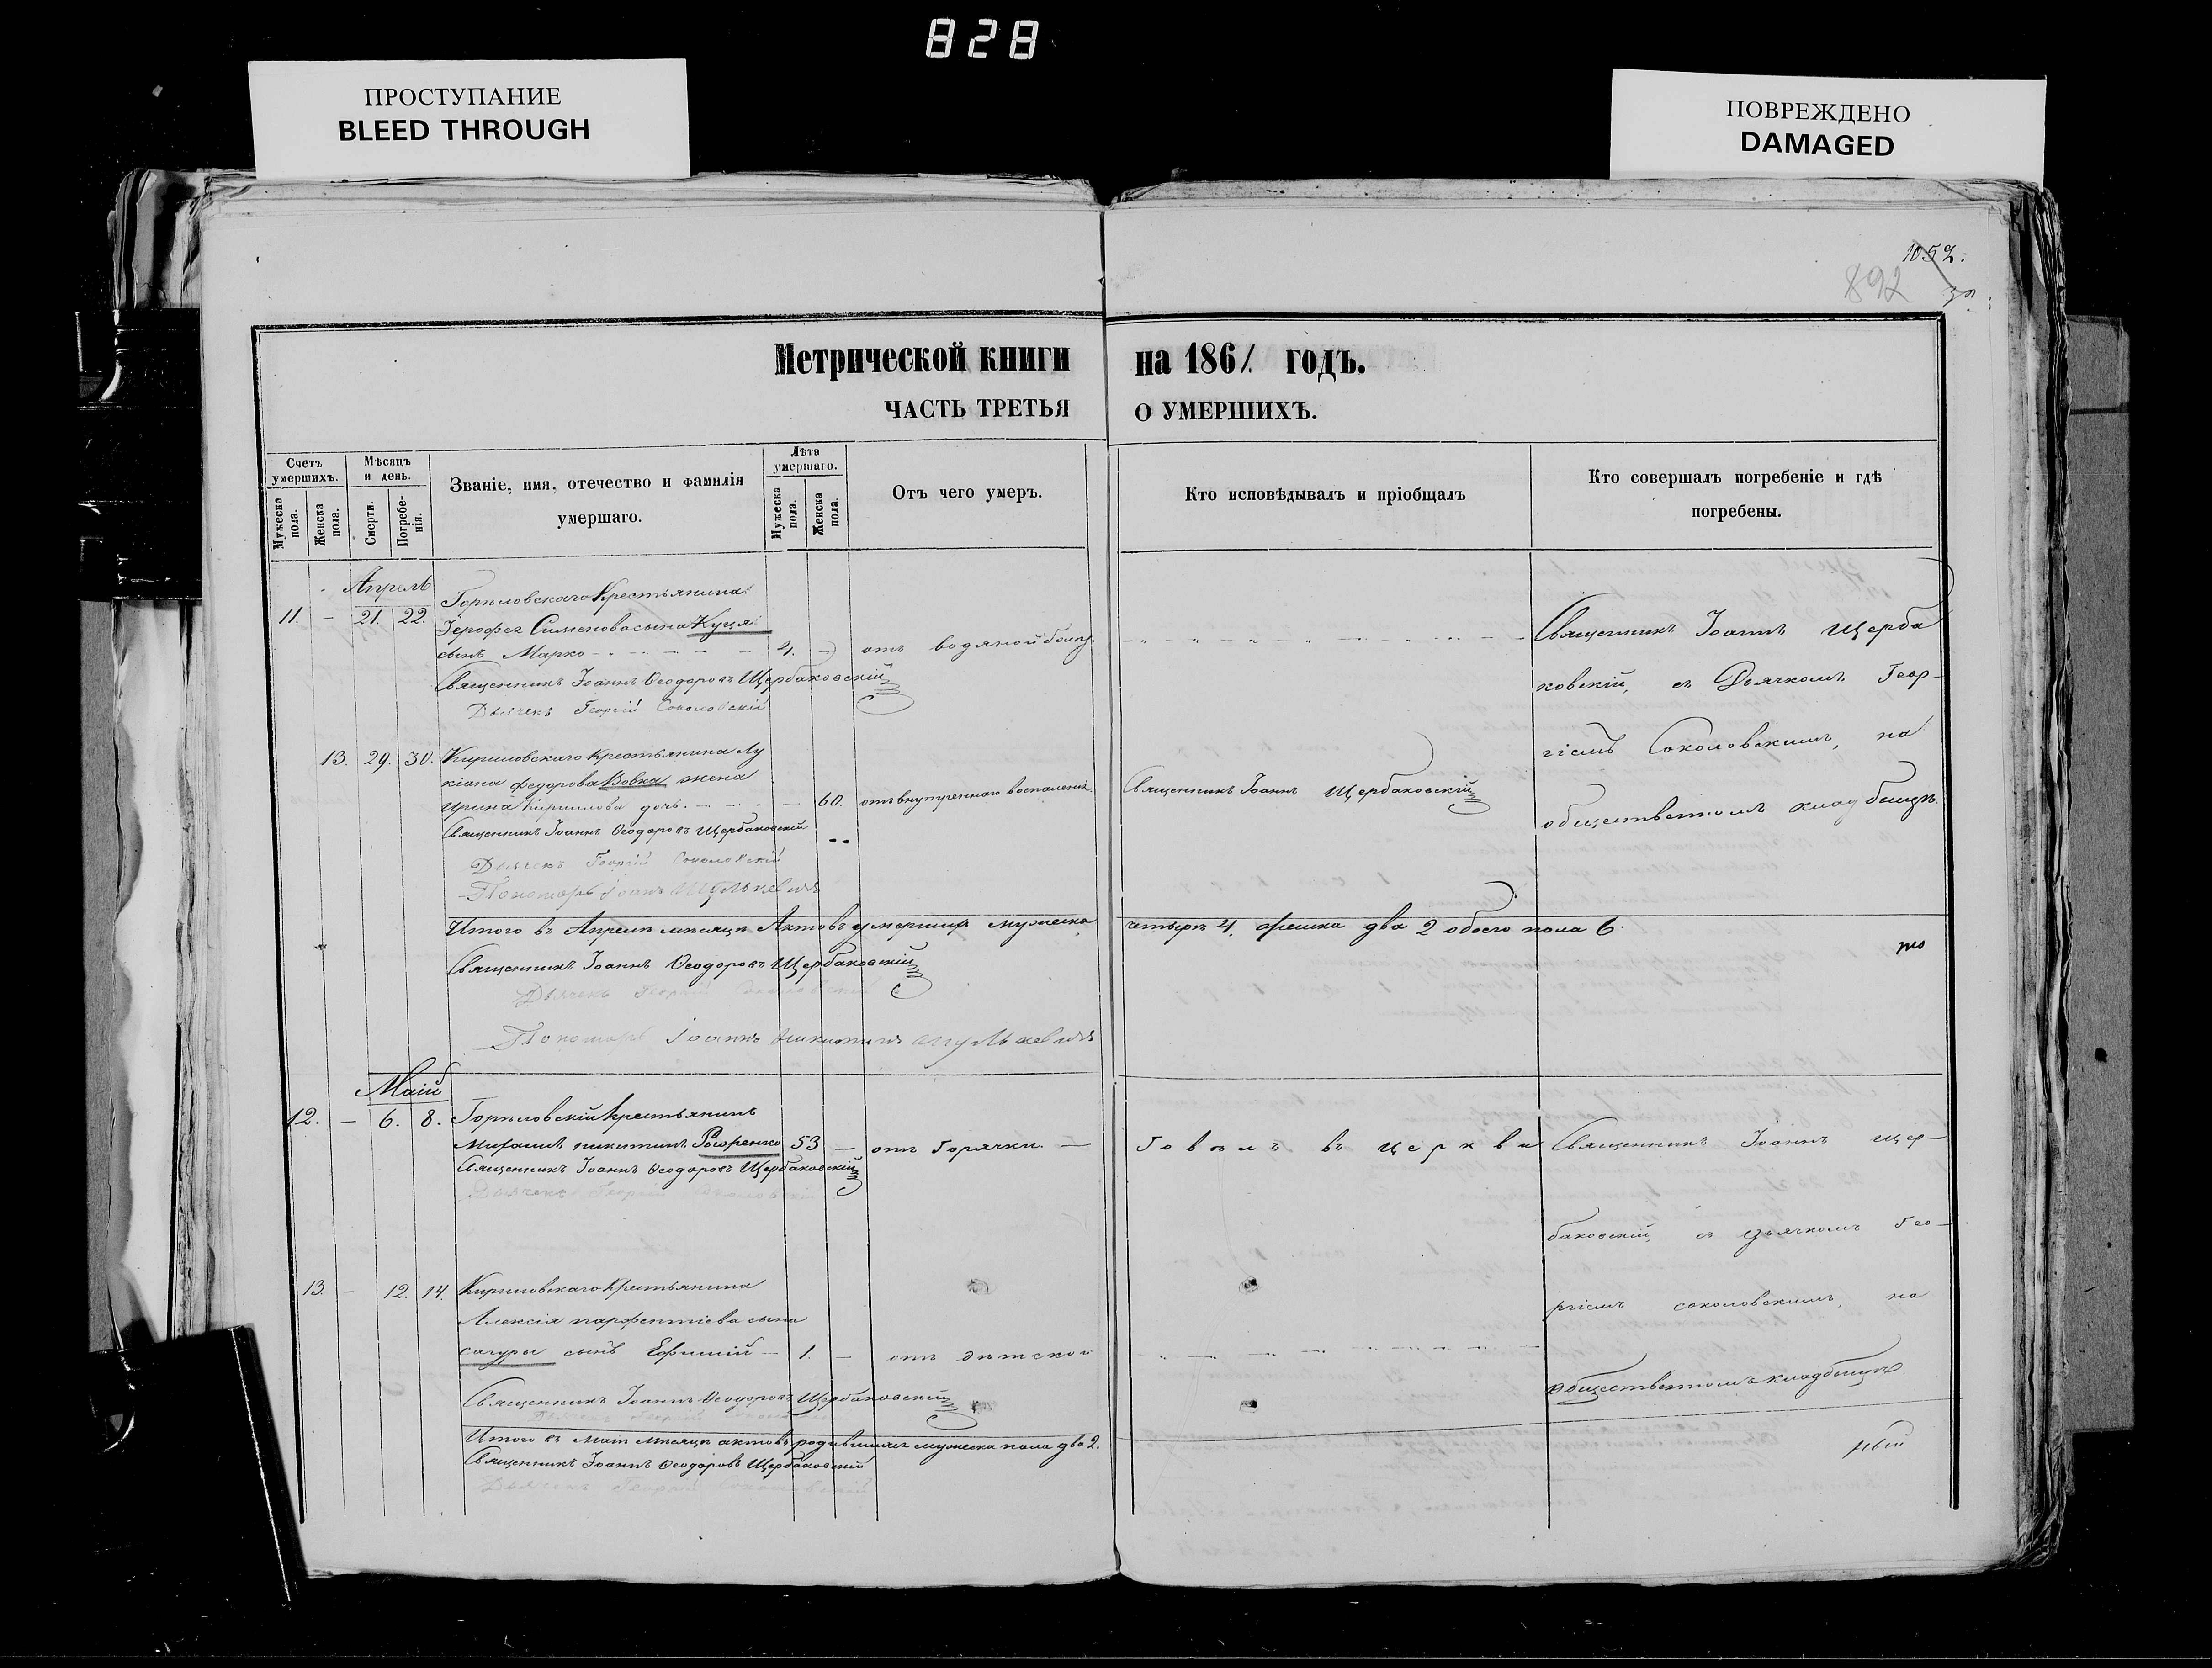 828
ПРОСТУПАНИЕ
BLEED THROUGH
ПОВРЕЖДЕНО
DAMAGED
1052.
892
Метрической книги на 1861. годъ.
ЧАСТЬ ТРЕТЬЯ О УМЕРШИХЪ.
Счетъ умершихъ.
Мужеска пола.
Женска пола.
Мѣсяцъ и день.
Смерти.
Погребенія.
Званіе, имя, отечество и фамилія
умершаго.
Лѣта умершаго.
Мужеска пола.
Женска пола.
Отъ чего умеръ.
Кто исповѣдывалъ и пріобщалъ
Кто совершалъ погребеніе и гдѣ
погребены.
Апрель
11. - 21. 22.
Горѣловскаго Крестьянина
Іерофея Сименова сына Куця
сынъ Марко 4. отъ водяной
Священникъ Іоаннъ Ѳеодоровъ Щербаковскій
Дьячекъ Георгій Соколовскій
Священникъ Іоаннъ Щерба
ковскій, съ Дьячкомъ Геор-
гіемъ Соколовскимъ, на
общественномъ кладбищѣ.
13. 29. 30. Кириловскаго Крестьянина Лу
кіана Федорова Вовка жена
Ирина Кириллова дочь. 60. отъ внутренняго воспаленія
Священникъ Іоаннъ Щербаковскій
Священникъ Іоаннъ Ѳеодоровъ Щербаковскій
Дьячекъ Георгій Соколовскій
Пономарь Іоанъ Шулькевичъ
Итого въ Апрелѣ мѣсяцѣ Актовъ умершихъ мужеска четыре 4. женска два 2 обоего пола 6.
Священникъ Іоаннъ Ѳеодоровъ Щербаковскій
Дьячекъ Георгій Соколовскій
Пономарь Іоаннъ Никитинъ Шулькевичъ
Маій
12. - 6. 8. Горѣловскій Крестьянинъ
никитинъ 53 - отъ Горячки. - Говѣлъ въ церкви
Священникъ Іоаннъ Ѳеодоровъ Щербаковскій
Дьячекъ Георгій Соколовскій
Священникъ Іоаннъ Щер-
баковскій, съ дьячкомъ Гео-
ргіемъ соколовскимъ, на
общественномъ кладбищѣ.
13. - 12. 14. Кириловскаго Крестьянина
Алексія парфентіева сына
сагуры сынъ Ефимій - 1. - отъ дѣтской
Священникъ Іоаннъ Ѳеодоровъ Щербаковскій
Итого въ Маіи мѣсяцѣ актовъ родившихъ мужеска пола два 2.
Священникъ Іоаннъ Ѳеодоровъ Щербаковскій
Дьячекъ Георгій Соколовскій